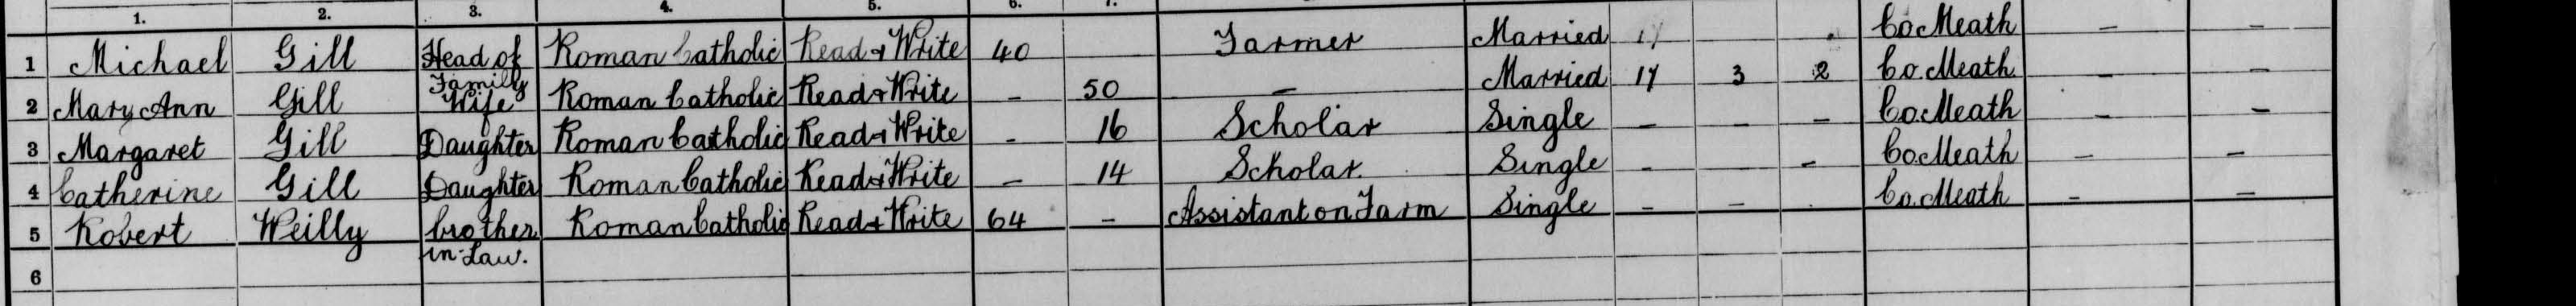 1. 2. 3. 4. 5. 6. 7.
1 Michael Gill Head of Family Roman Catholic Read & Write 40 Farmer Married 17 Co Meath - -
2 Mary Ann Gill Wife Roman Catholic Read & Write - 50 - Married 17 3 2 Co. Meath - -
3 Margaret Gill Daughter Roman Catholic Read & Write - 16 Scholar Single - - - Co. Meath - -
4 Catherine Gill Daughter Roman Catholic Read & Write - 14 Scholar. Single - - Co. Meath - -
5 Robert Weilly brother in-Law. Roman Catholic Read & Write 64 - Assistant on Farm Single - - Co. Meath - -
6